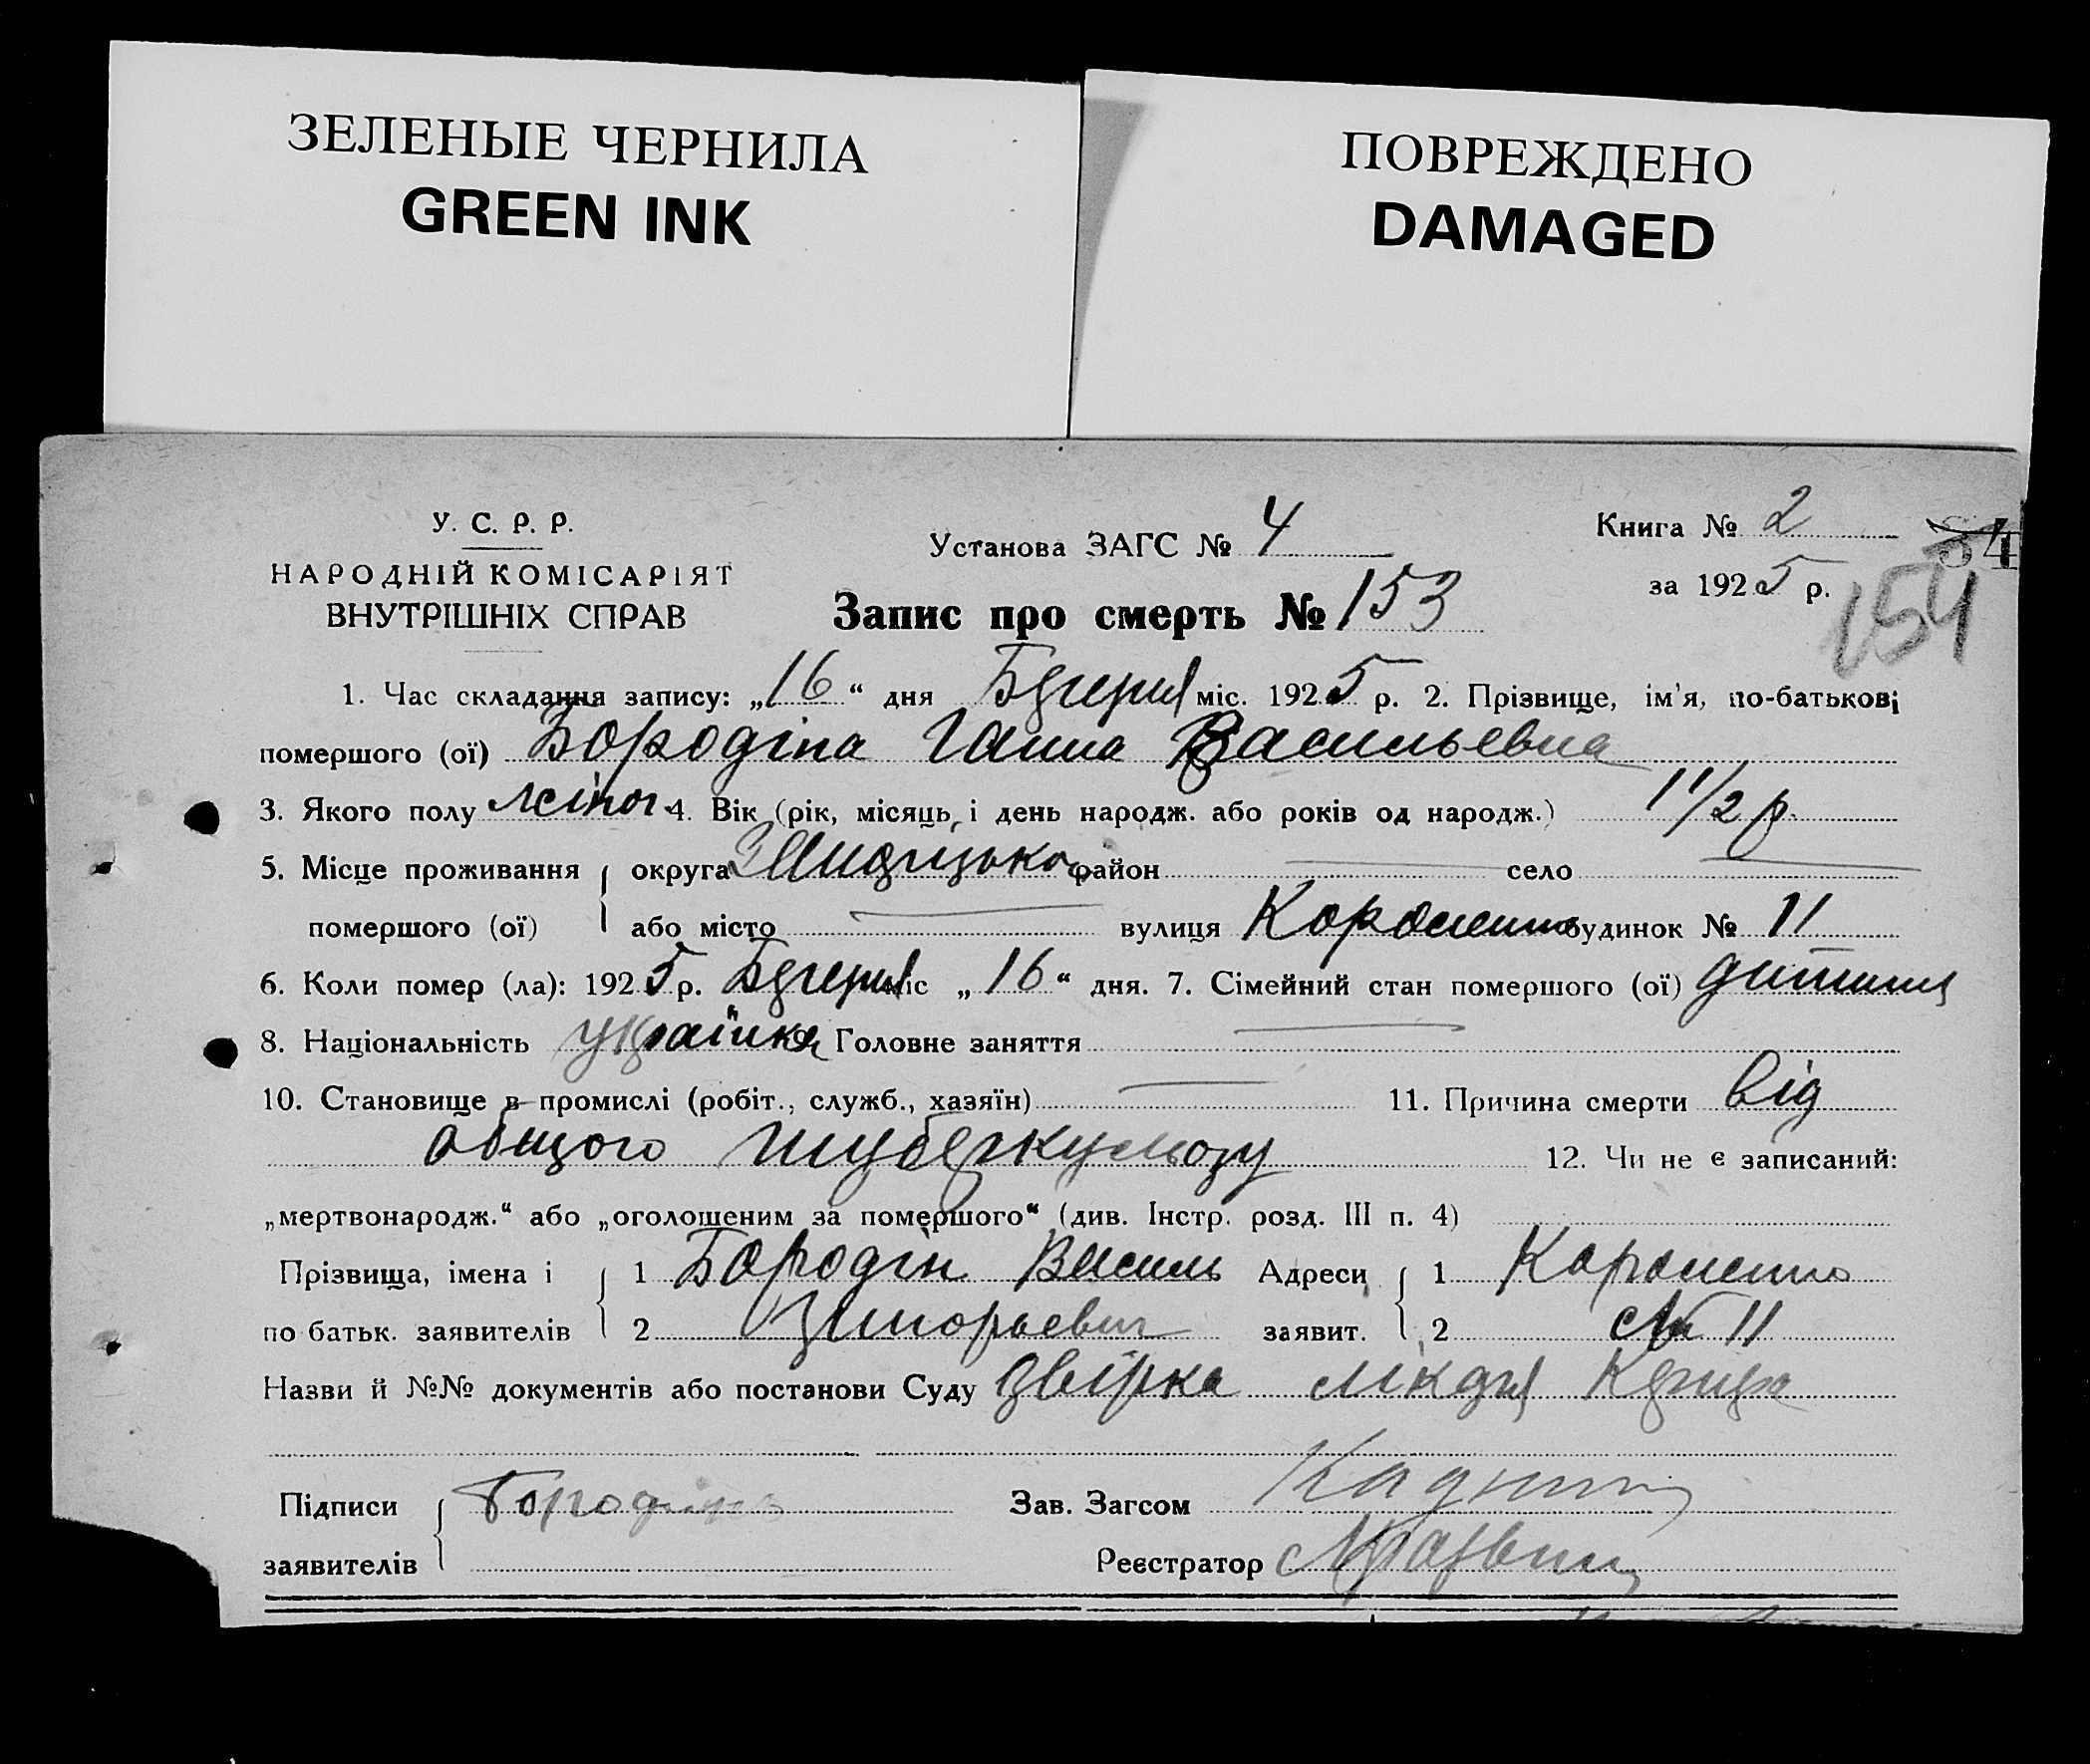 ЗЕЛЕНЫЕ ЧЕРНИЛА
GREEN INK
ПОВРЕЖДЕНО
DAMAGED
У. С. Р. Р.
НАРОДНІЙ КОМІСАРІЯТ
ВНУТРІШНІХ СПРАВ
Установа ЗАГС № 4
Запис про смерть № 153
Книга № 2
за 1925 р.
154
1. Час складання запису: „16“ дня міс. 1925 р. 2. Прізвище, ім'я, по-батькові
помершого (ої) Бородіна Ганна Васильевна
3. Якого полу жіноч. 4. Вік (рік, місяць, і день народж. або років од народж.) 1 1/2 р.
5. Місце проживання округа район село
помершого (ої) або місто вулиця будинок № 11
6. Коли помер (ла): 1925 р. міс „16“ дня. 7. Сімейний стан помершого (ої) дитина
8. Національність українка 9. Головне заняття
10. Становище в промислі (робіт., служб., хазяїн) 11. Причина смерти від
общого туберкульозу 12. Чи не є записаний:
„мертвонародж.“ або „оголошеним за помершого“ (див. Інстр. розд. III п. 4)
Прізвища, імена і 1 Бородін Василь Адреси 1
по батьк. заявителів 2 заявит. 2 № 11
Назви й №№ документів або постанови Суду
Підписи Зав. Загсом
заявителів Реєстратор